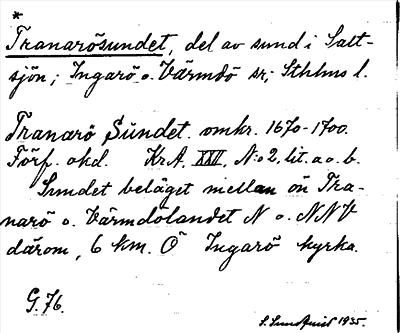 *
Tranarösundet, del av sund i Salt-
sjön; Ingarö o. Värmdö sr; Sthlms l.
Tranarö Sundet. omkr. 1670-1700.
Förf. okd. Kr.A. XXII, N:o 2. lit. a o. b.
Sundet beläget mellan ön Tra-
narö o. Värmdölandet N o. NNV
därom, 6 km. Ö Ingarö kyrka.
G. 76.
S. Sundqvist 1935.